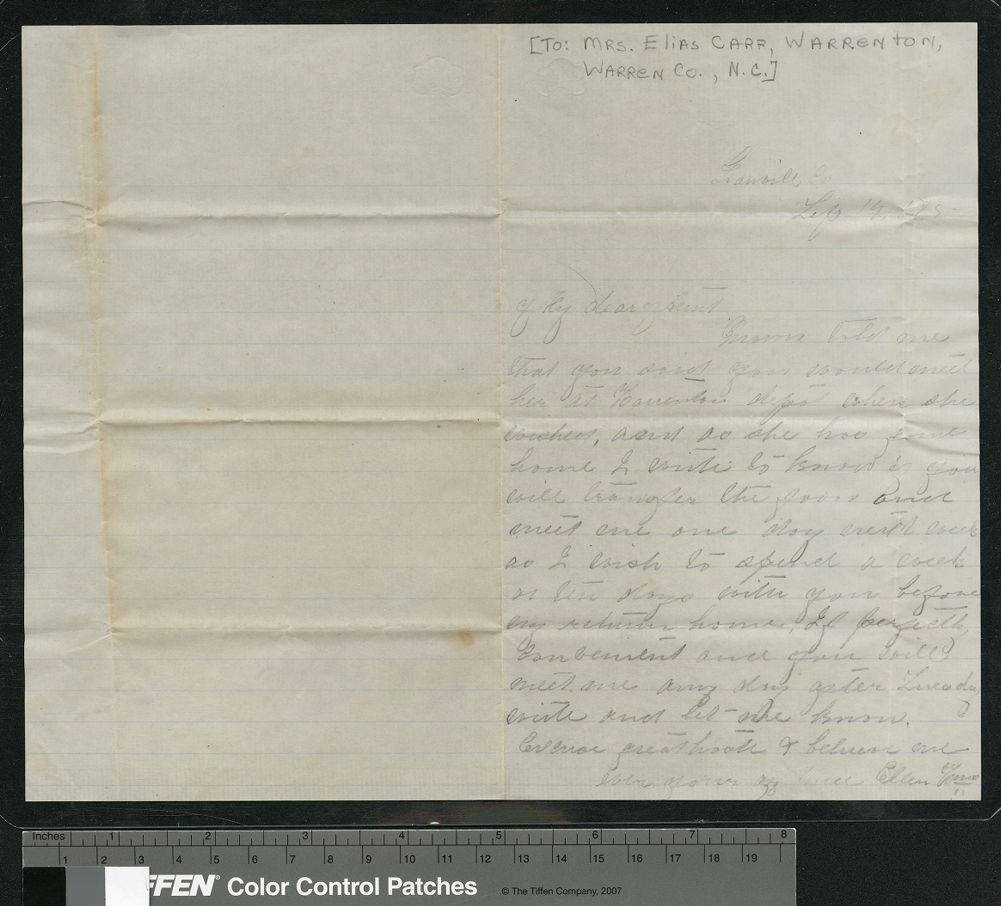 [TO: MRS. ELIAS CARR, WARRENTON,
WARREN CO., N.C.]
Granvill Co
Sep 14, 
My dear Aunt
Emma told me
that you said you would meet
her at Warrenton depot when she
wished, and as she has gone
home I write to know if you
will transfer the favor and
meet me one day next week
as I wish to spend a week
or ten days with you before
my return home. If perfectly
convenient and you will
meet me any day after Tuesday
write and let me know.
Excuse great haste & believe me
ever your Ellen
Inches 1 2 3 4 5 6 7 8
1 2 3 4 5 6 7 8 9 10 11 12 13 14 15 16 17 18 19
TIFFEN® Color Control Patches © The Tiffen Company, 2007